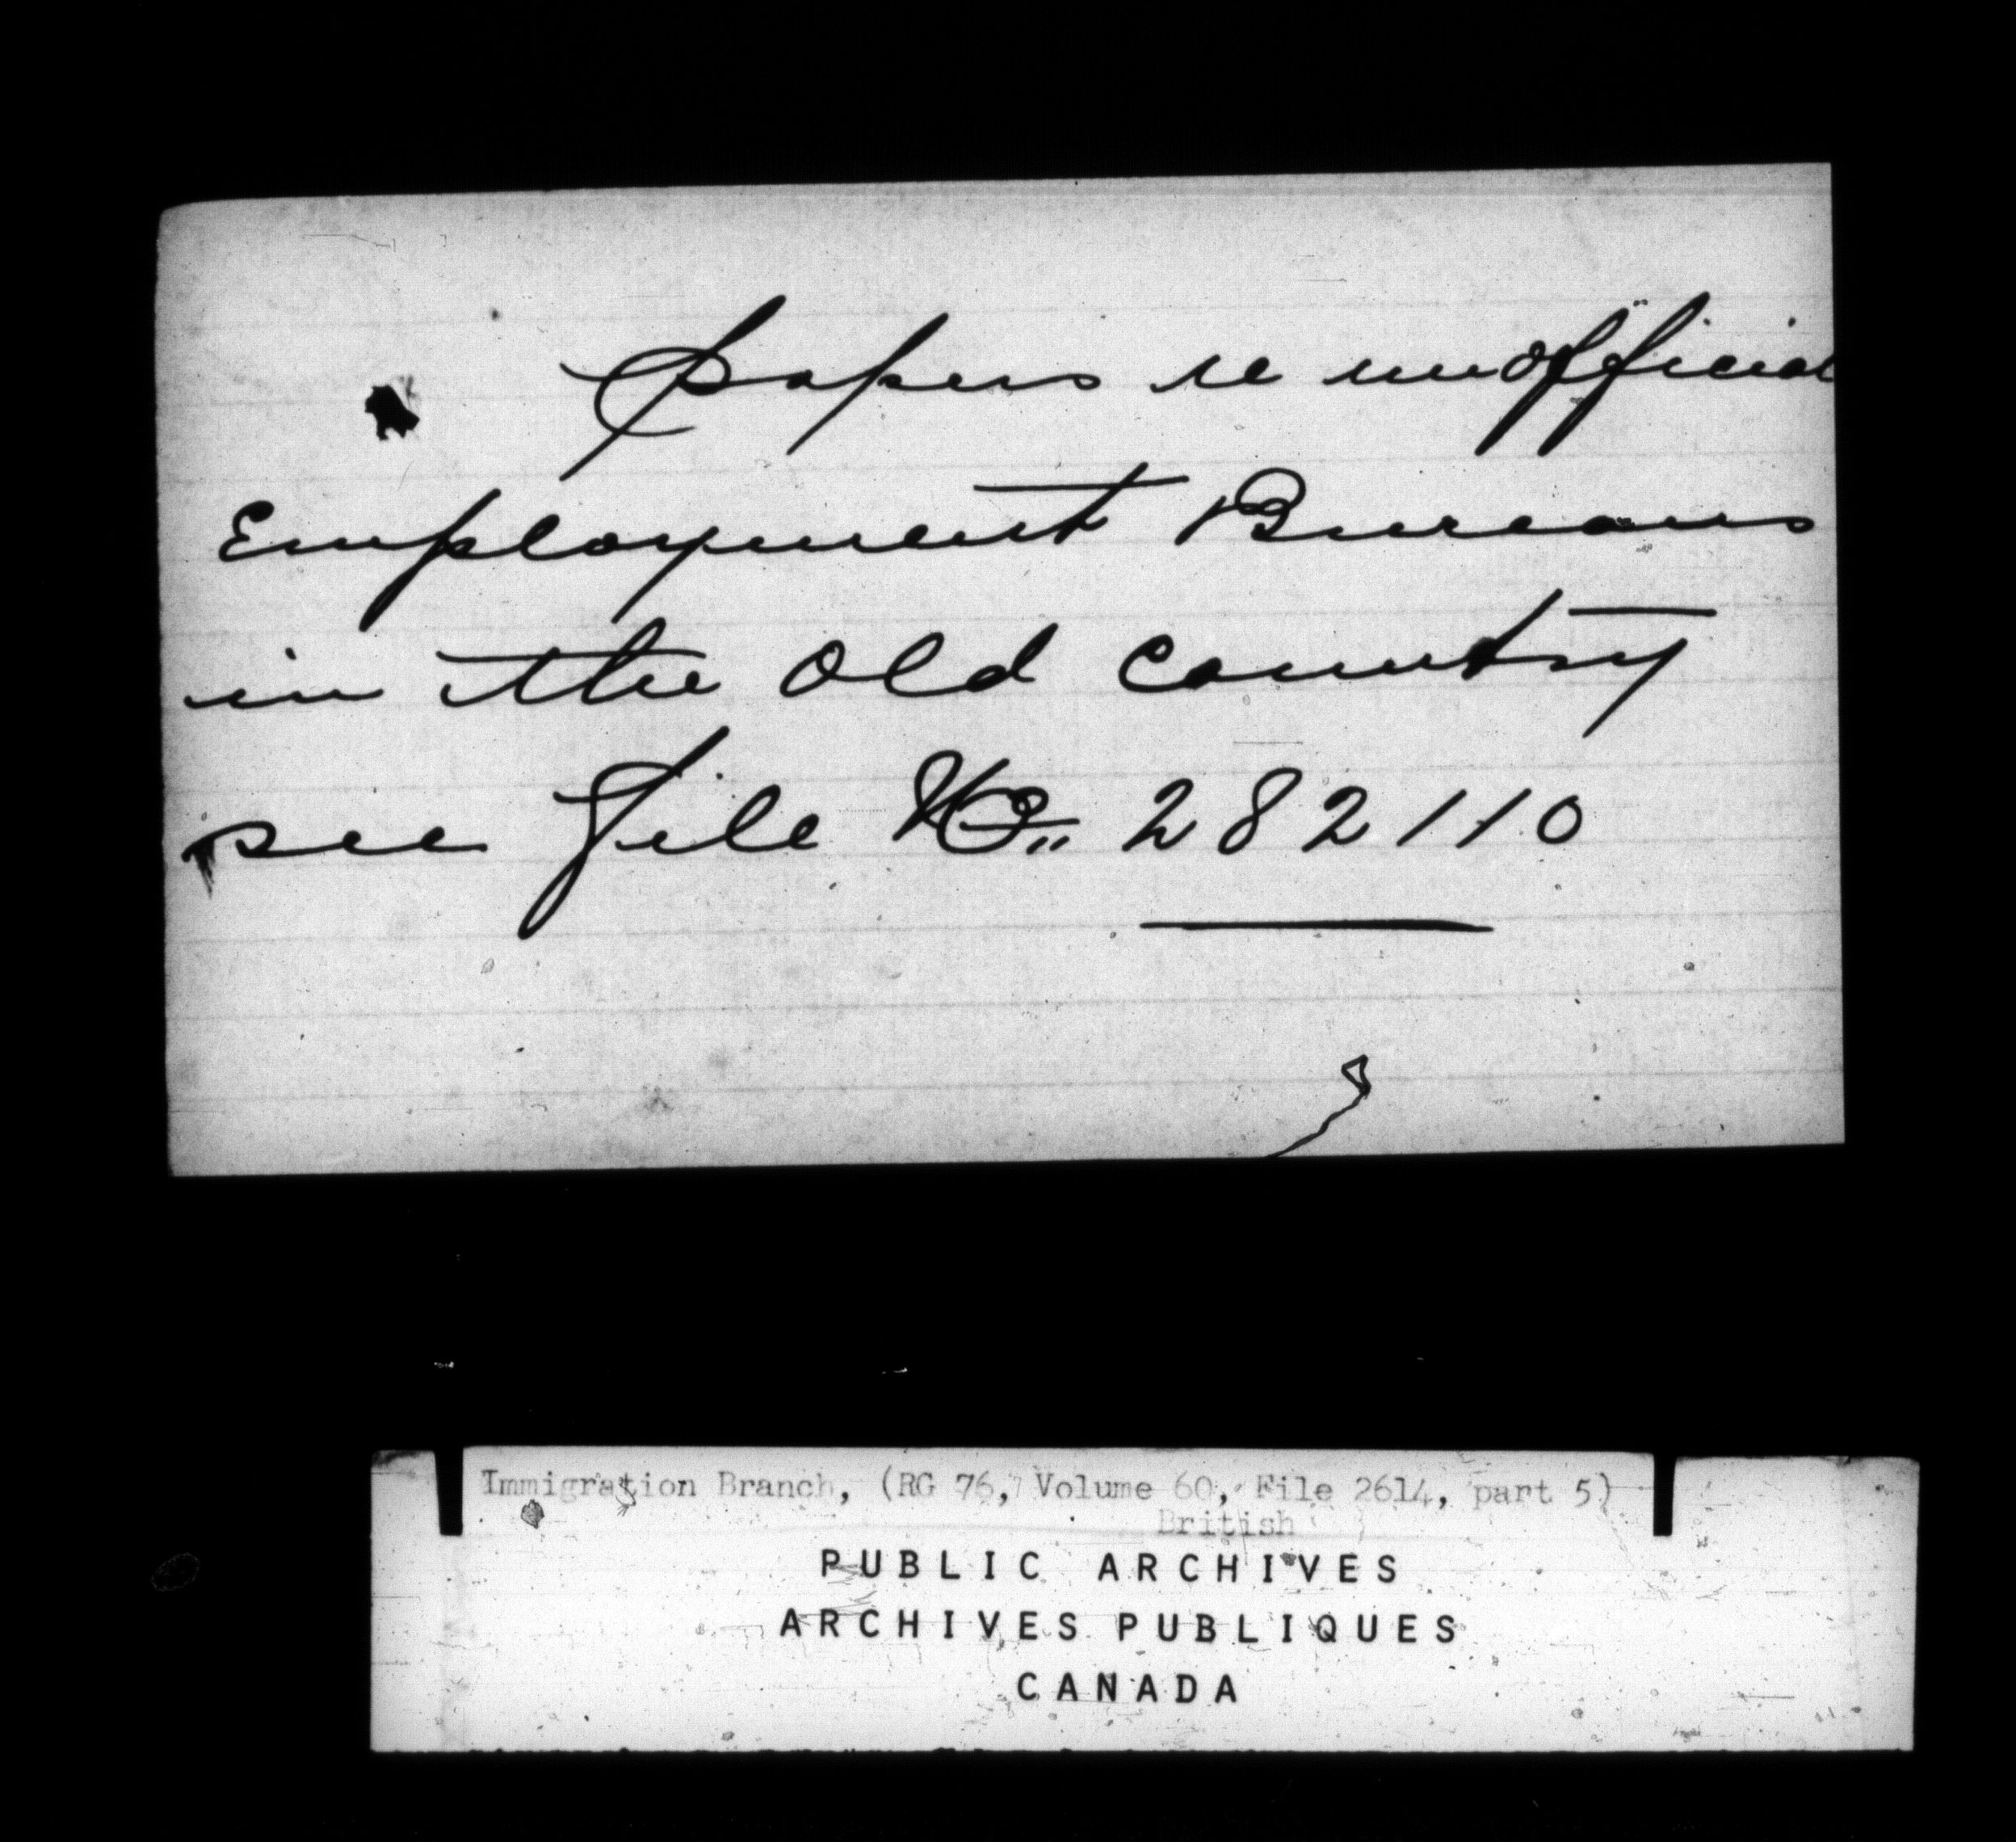 Papers re unofficial
Employment Bureaus
in the Old Country
see file No. 282110
Immigration Branch, (RG 76, Volume 60, File 2614, part 5)
British
PUBLIC ARCHIVES
ARCHIVES PUBLIQUES
CANADA